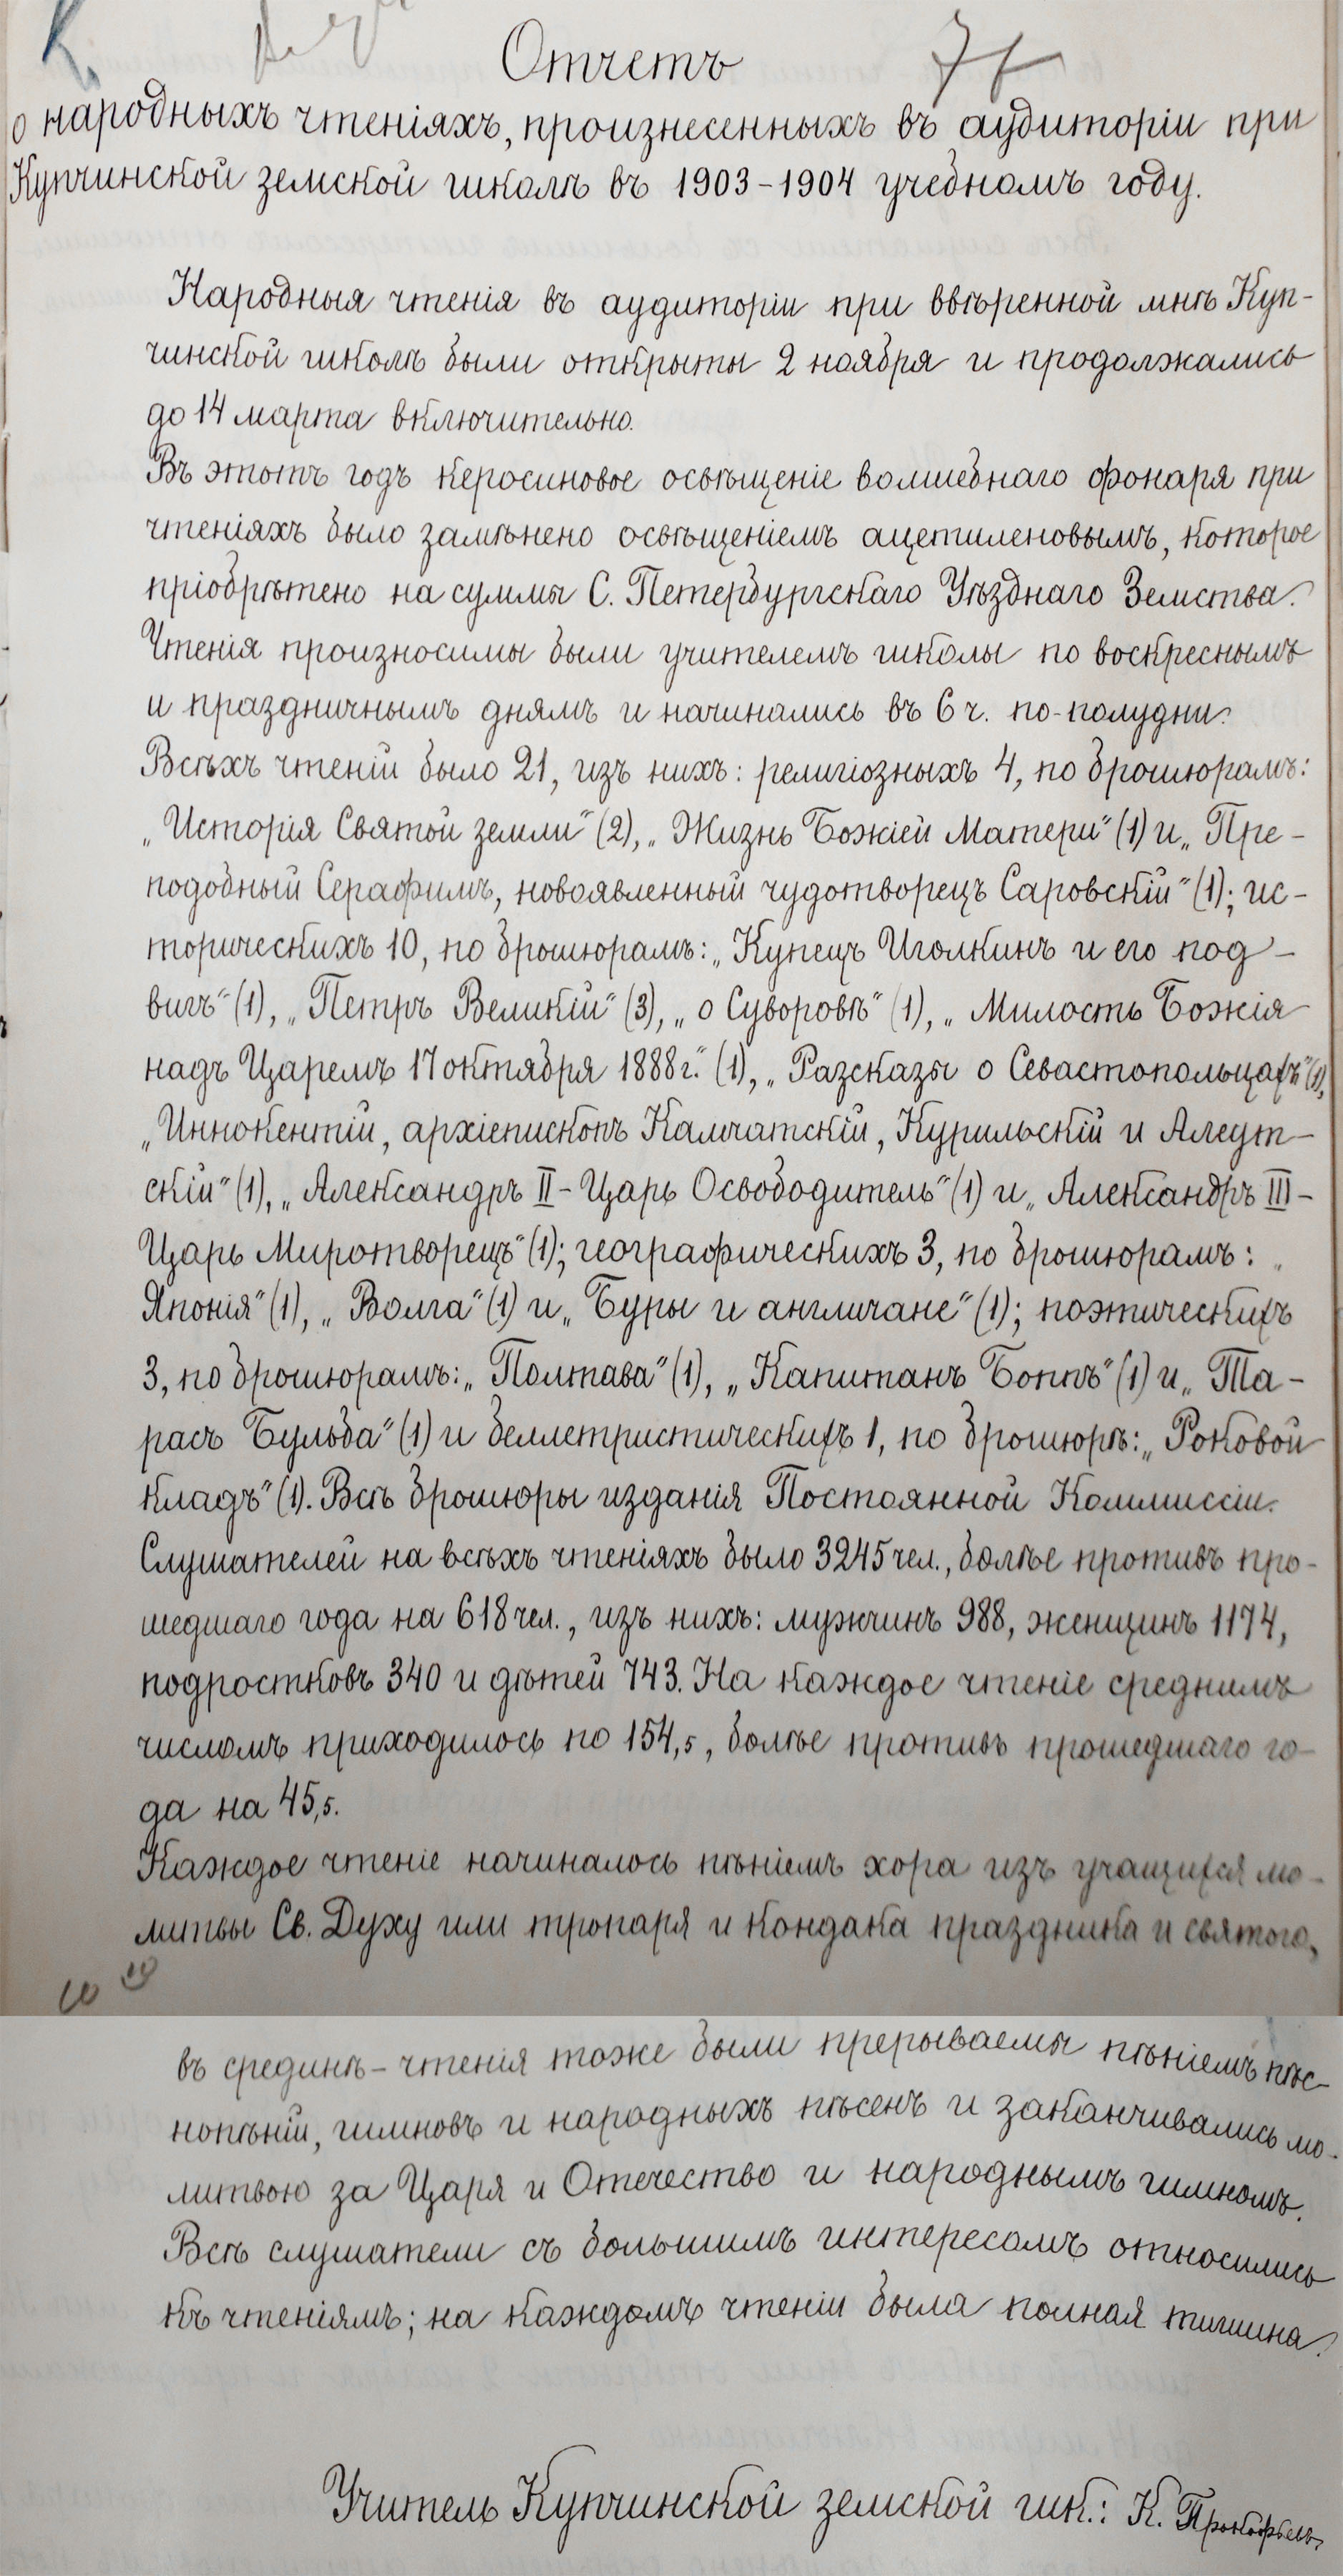 Отчетъ
о народныхъ чтеніяхъ, произнесенныхъ въ аудиторіи при
Купчинской земской школѣ въ 1903-1904 учебномъ году.
Народныя чтенія въ аудиторіи при ввѣренной мнѣ Куп-
чинской школѣ были открыты 2 ноября и продолжались
до 14 марта включительно.
Въ этотъ годъ керосиновое освѣщеніе волшебнаго фонаря при
чтеніяхъ было замѣнено освѣщеніемъ ацетиленовымъ, которое
пріобрѣтено на суммы С. Петербургскаго Уѣзднаго Земства.
Чтенія произносимы были учителемъ школы по воскреснымъ
и праздничнымъ днямъ и начинались въ 6 ч. по-полудни.
Всѣхъ чтеній было 21, изъ нихъ: религіозныхъ 4, по брошюрамъ:
„Исторія Святой земли“ (2), „Жизнь Божіей Матери“ (1) и „Пре-
подобный Серафимъ, новоявленный чудотворецъ Саровскій“ (1); ис-
торическихъ 10, по брошюрамъ: „Купецъ Иголкинъ и его под-
вигъ“ (1), „Петръ Великій“ (3), „о Суворовѣ“ (1), „Милость Божія
надъ Царемъ 17 октября 1888 г.“ (1), „Разсказы о Севастопольцахъ“ (1),
„Иннокентій, архіепископъ Камчатскій, Курильскій и Алеут-
скій“ (1), „Александръ II - Царь Освободитель“ (1) и „Александръ III -
Царь Миротворецъ“ (1); географическихъ 3, по брошюрамъ: „
Японія“ (1), „Волга“ (1) и „Буры и англичане“ (1); поэтическихъ
3, по брошюрамъ: „Полтава“ (1), „Капитанъ Боппъ“ (1) и „Та-
расъ Бульба“ (1) и беллетристическихъ 1, по брошюрѣ: „Роковой
кладъ“ (1). Всѣ брошюры изданія Постоянной Коммиссіи.
Слушателей на всѣхъ чтеніяхъ было 3245 чел., болѣе противъ про-
шедшаго года на 618 чел., изъ нихъ: мужчинъ 988, женщинъ 1174,
подростковъ 340 и дѣтей 743. На каждое чтеніе среднимъ
числомъ приходилось по 154,5, болѣе противъ прошедшаго го-
да на 45,5.
Каждое чтеніе начиналось пѣніемъ хора изъ учащихся мо-
литвы Св. Духу или тропаря и кондака праздника и святого,
въ срединѣ - чтенія тоже были прерываемы пѣніемъ пѣс-
нопѣній, гимновъ и народныхъ пѣсенъ и заканчивались мо-
литвою за Царя и Отечество и народнымъ гимномъ.
Всѣ слушатели съ большимъ интересомъ относились
къ чтеніямъ; на каждомъ чтеніи была полная тишина.
Учитель Купчинской земской шк.: К. Прокофьевъ.